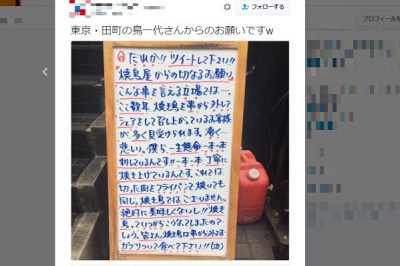 フォローする
プロフィールを
東京・田町の鳥一代さんからのお願いですw
だれか!!ツイートして下さい!!
焼鳥屋からの切なるお願い
こんな事を言える立場では…
ここ数年焼き鳥を串から外して
シェアをして召し上がっているお客様が
多く見受けられます。凄く…
悲しい。僕ら一生懸命一本一本
刺しているんです!!一本一本、丁寧に
焼き上げているんです。これでは
切った肉をフライパンで焼いても
同じ。焼き鳥では、ございません。
絶対に美味しくないし!!焼き
鳥っていつからこうなてしまったので
しょう。皆さん、焼き鳥は串から外さず
ガブリついて食べて下さい!!